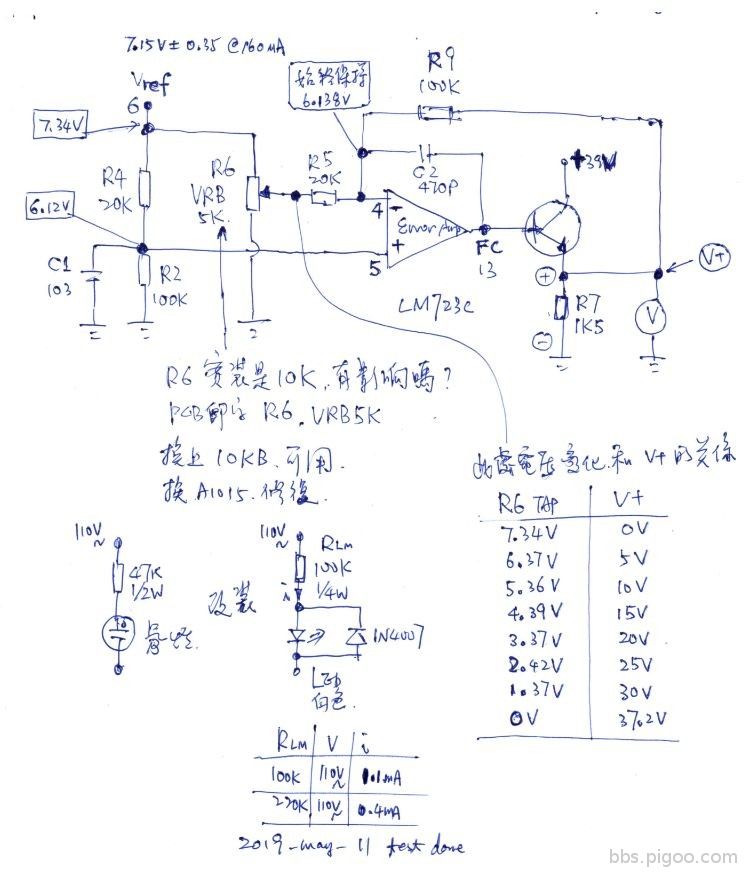 7.15V ± 0.35 @160mA
Vref
6
7.34V
始終保持
6.138V
R9
100K
R4
20K
R6
VRB
5K
R5
20K
C2
470P
+39V
6.12V
4
-
Error Amp
+
5
FC
13
C1
103
R2
100K
LM723C
+
-
R7
1K5
V
V+
R6 安裝是10K,有影响嗎?
PCB印字 R6. VRB5K
換上 10KB.可用.
換A1015.修復.
此處電压變化.和 V+的关係
R6 TAP V+
7.34V 0V
6.37V 5V
5.36V 10V
4.39V 15V
3.37V 20V
2.42V 25V
1.37V 30V
0V 37.2V
110V
~
47K
1/2W
改裝
110V
~
RLM
100K
1/4W
i
1N4007
LED
白色
RLM V i
100K 110V~ 1.1mA
220K 110V~ 0.4mA
2019-may-11 test done
bbs.pigoo.com